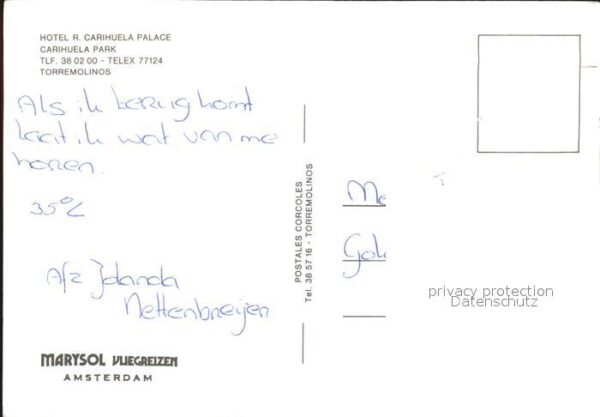 HOTEL R. CARIHUELA PALACE
CARIHUELA PARK
TLF. 38 02 00 - TELEX 77124
TORREMOLINOS
Als ik terug komt
laat ik wat van me
horen.
35°C
Afz Jolanda
Nettenbreijen
MARYSOL VLIEGREIZEN
AMSTERDAM
POSTALES CORCOLES
Tel. 38 57 16 - TORREMOLINOS
Me
privacy protection
Datenschutz